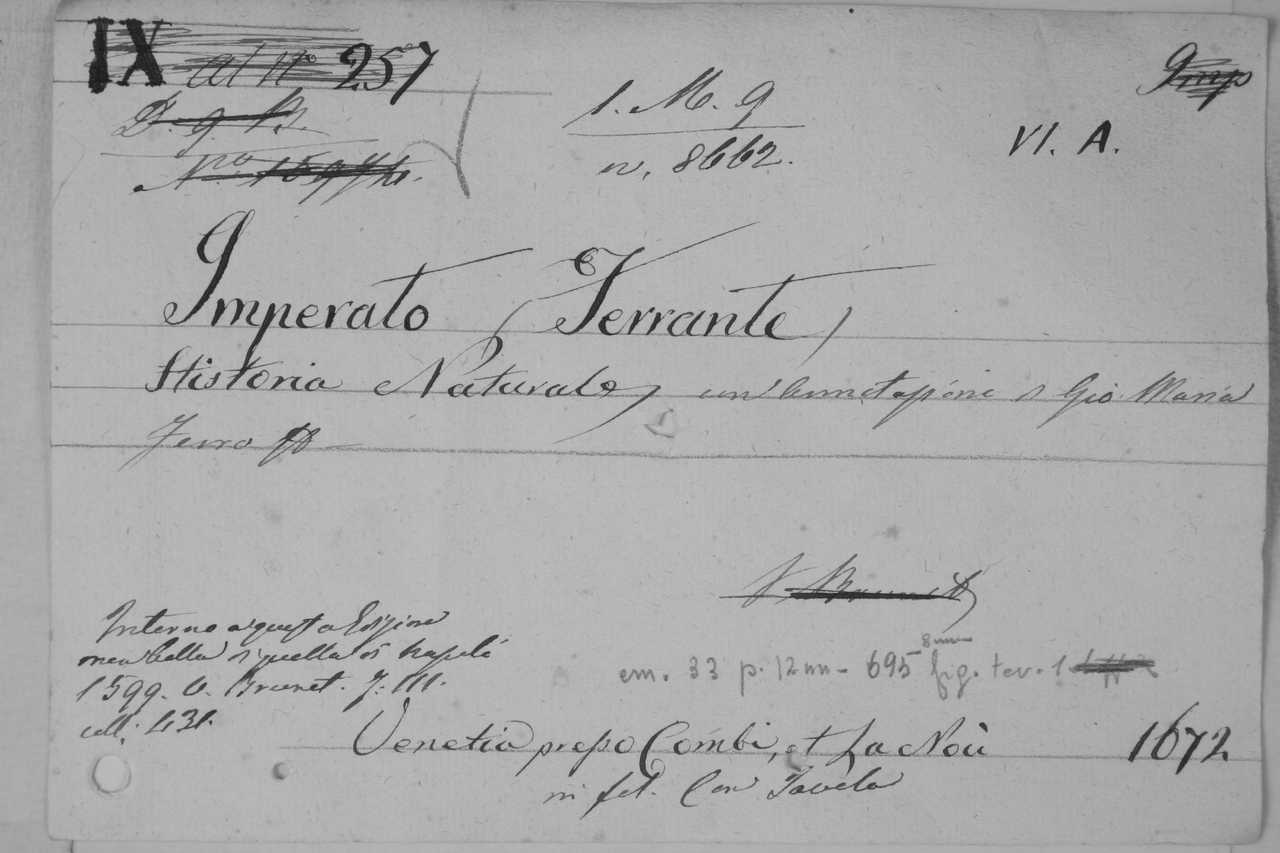 IX al n° 257
Imp
1. M. 9
VI. A.
n. 8662.
Imperato (Ferrante)
Historia Naturale, con annotazioni di Gio. Maria
Ferro
V. Brunet
Intorno a questa Edizione
men bella di quella di Napoli
1599. V. Brunet. T. III.
coll. 431.
em. 33 p. 12 nn - 695 - 8 nn fig. tav. 1
Venetia presso Combi, et La Noù 1672
in fol. Con Tavola